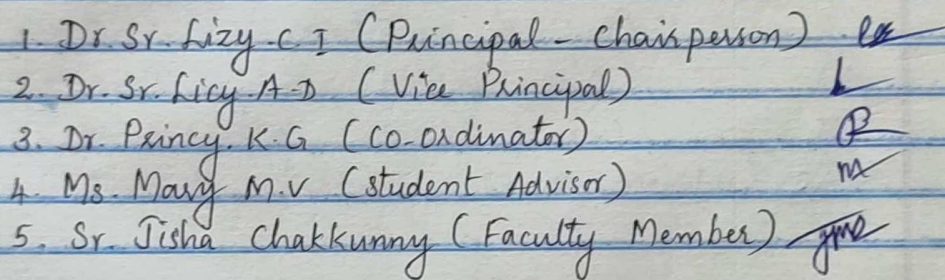 1. Dr. Sr. Lizy. C. I (Principal - Chairperson)
2. Dr. Sr. Licy. A. D (Vice Principal)
3. Dr. Princy. K. G (Co-ordinator)
4. Ms. Mary M. V (Student Advisor)
5. Sr. Jisha Chakkunny (Faculty Member)